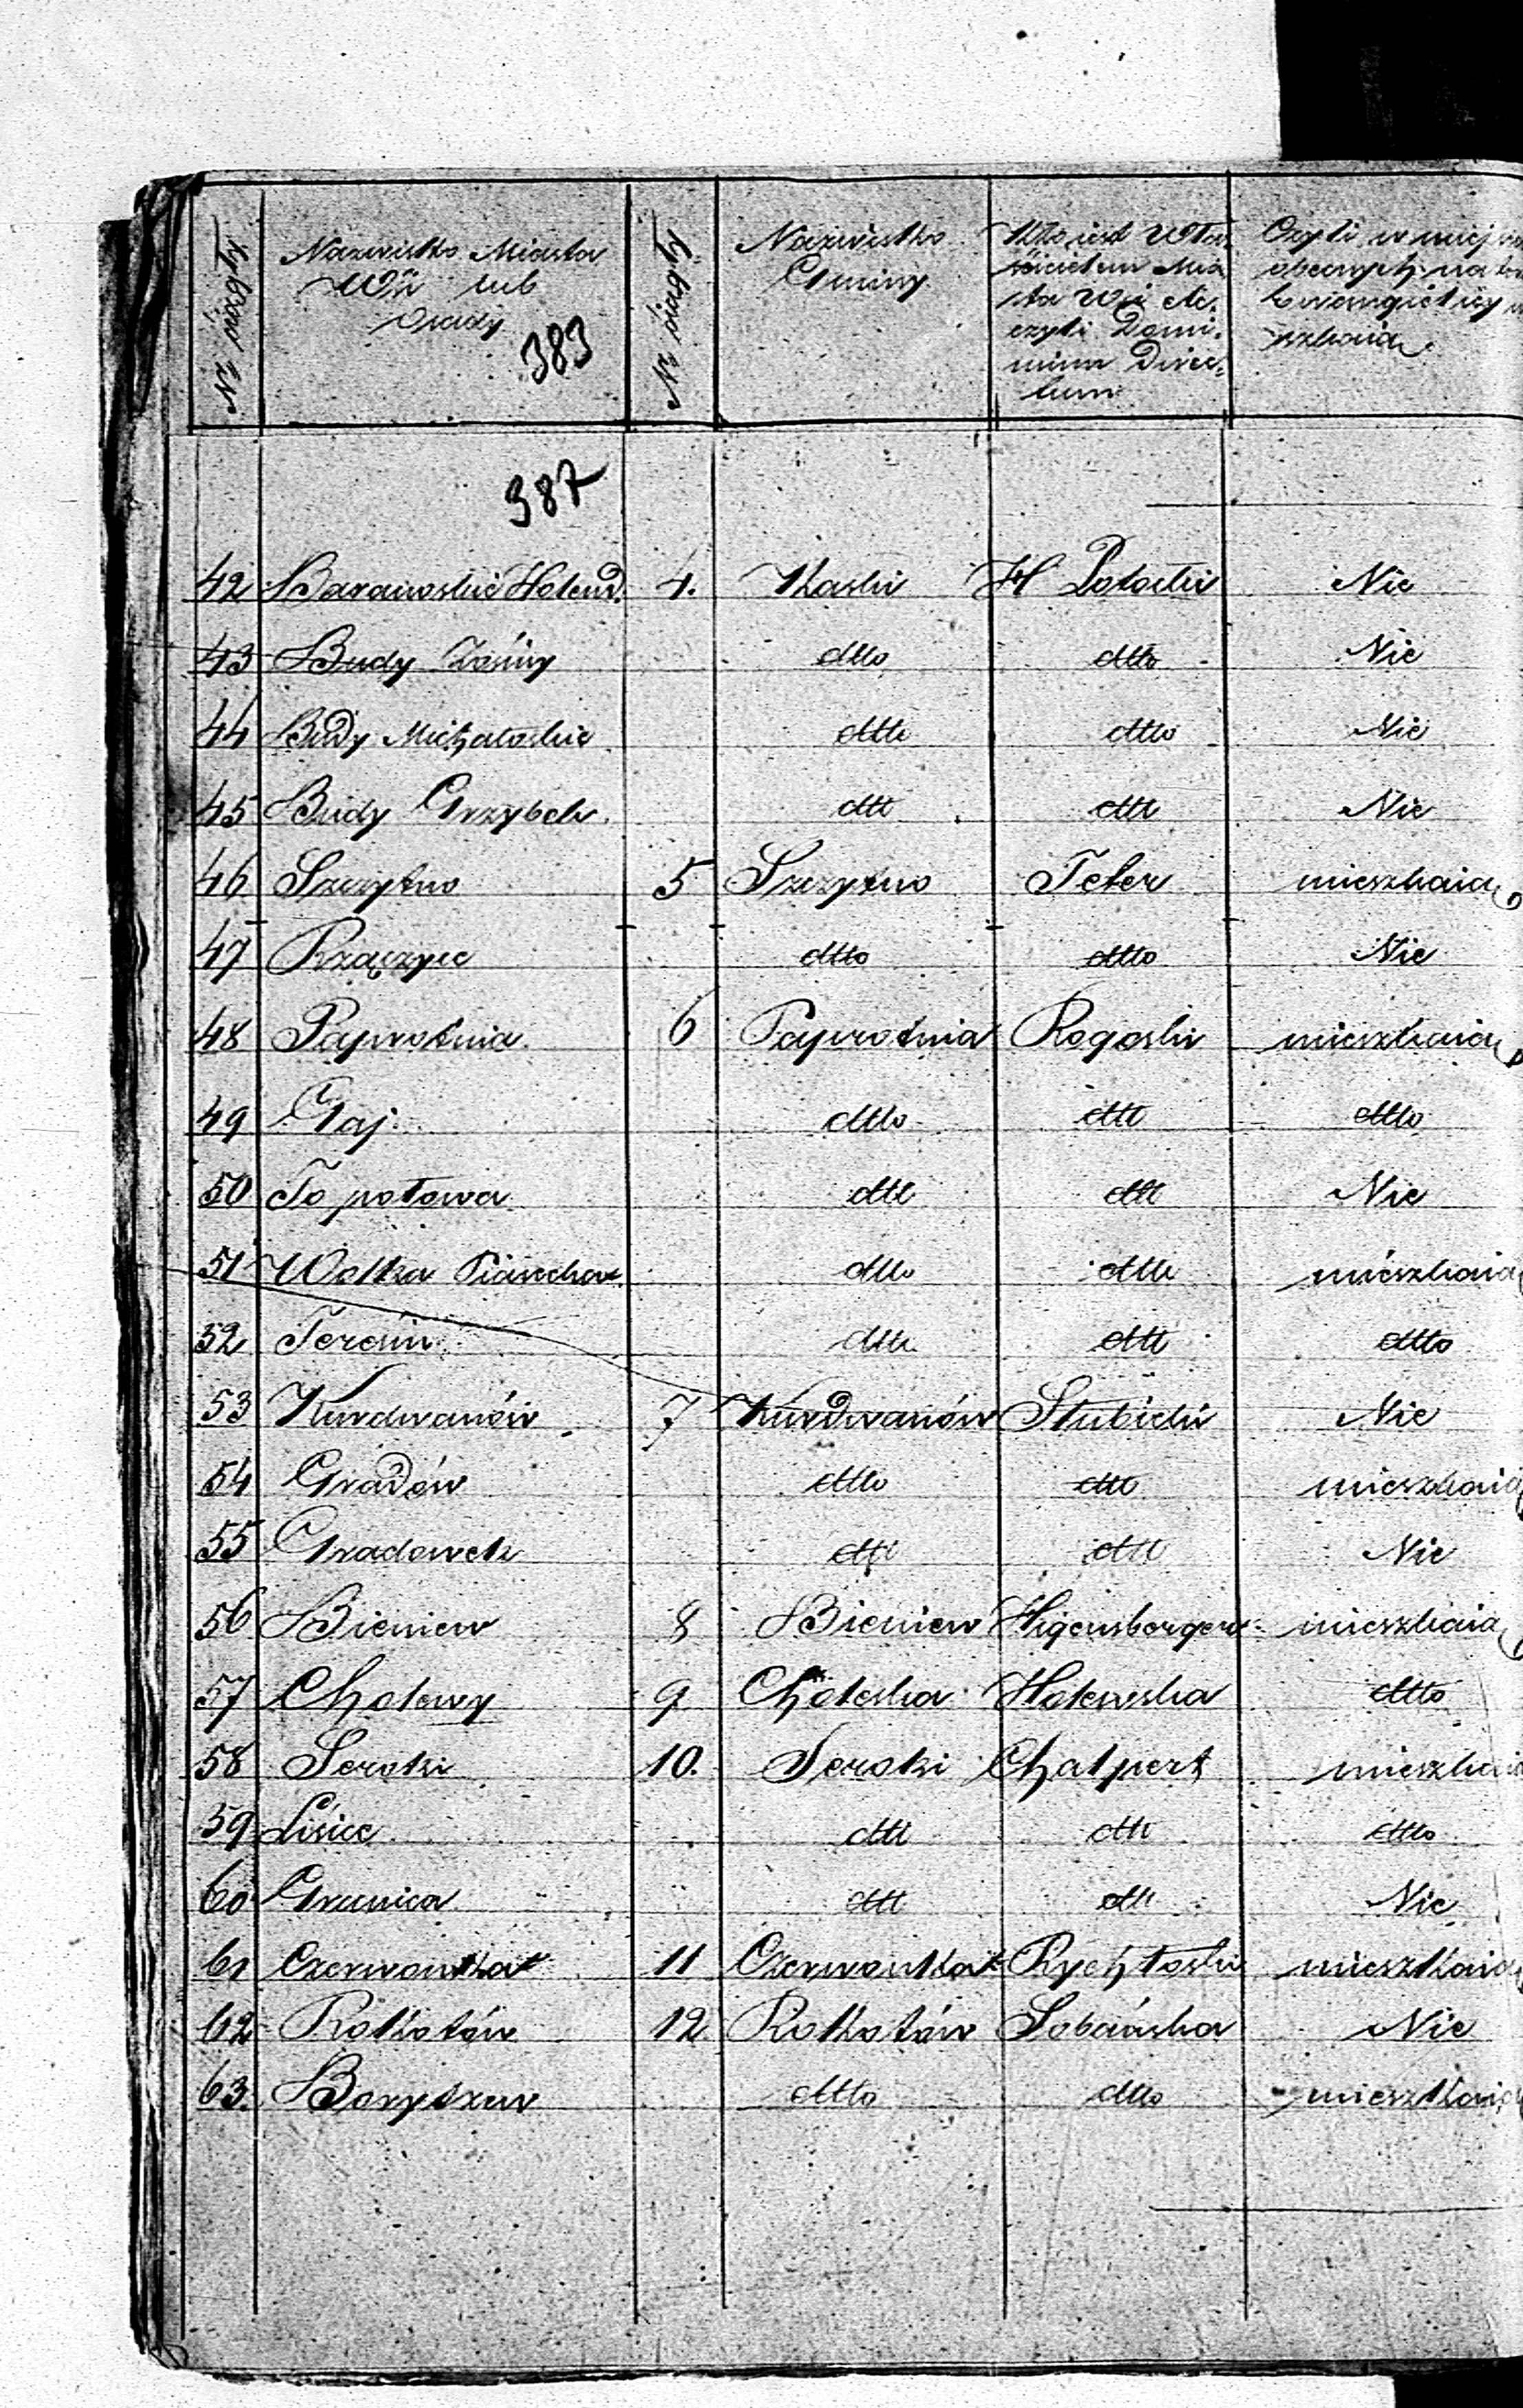 Nr ciągły
Nazwisko Miasta
Wsi lub
Osady
383
Nr ciągły
Nazwisko
Gminy
Kto jest Wła
ścicielem Mia
sta Wsi etc.
czyli Domi-
nium Direc-
tum
Czyli w niej
obecnych na
szkaią
387
42 Baranoskie Holend. 4. Kaski H Potocki Nie
43 Budy Zaśiny dtto dtto Nie
44 Budy Michałoskie dtto dtto Nie
45 Budy Grzybek dtt dtt Nie
46 Szczytno 5 Szczytno Feter mieszkaią
47 Rzączyce dtto dtto Nie
48 Paprotnia 6 Paprotnia Rogoski mieszkaią
49 Gaj dtto dtt dtto
50 Topołowa dtt dtt Nie
51 Wolka Piasecka dtto dtto mieszkaią
52 Teresin dtto dtt dtto
53 Kurdwanów 7 Kurdwanów Słubicki Nie
54 Gradów dtto dtto mieszkaią
55 Gradowek dtt dtt Nie
56 Bieniew 8 Bieniew Higersberger mieszkaią
57 Cholewy 9 Choleska Holewska dtto
58 Seroki 10. Seroki Chalpert mieszkaią
59 Lisice dtt dtt dtto
60 Grunica dtt dtt Nie
61 Czerwonka 11 Czerwonka Rychłoski mieszkaią
62 Rokotów 12 Rokotów Sobańska Nie
63. Boryszew dtto dtto mieszkaią